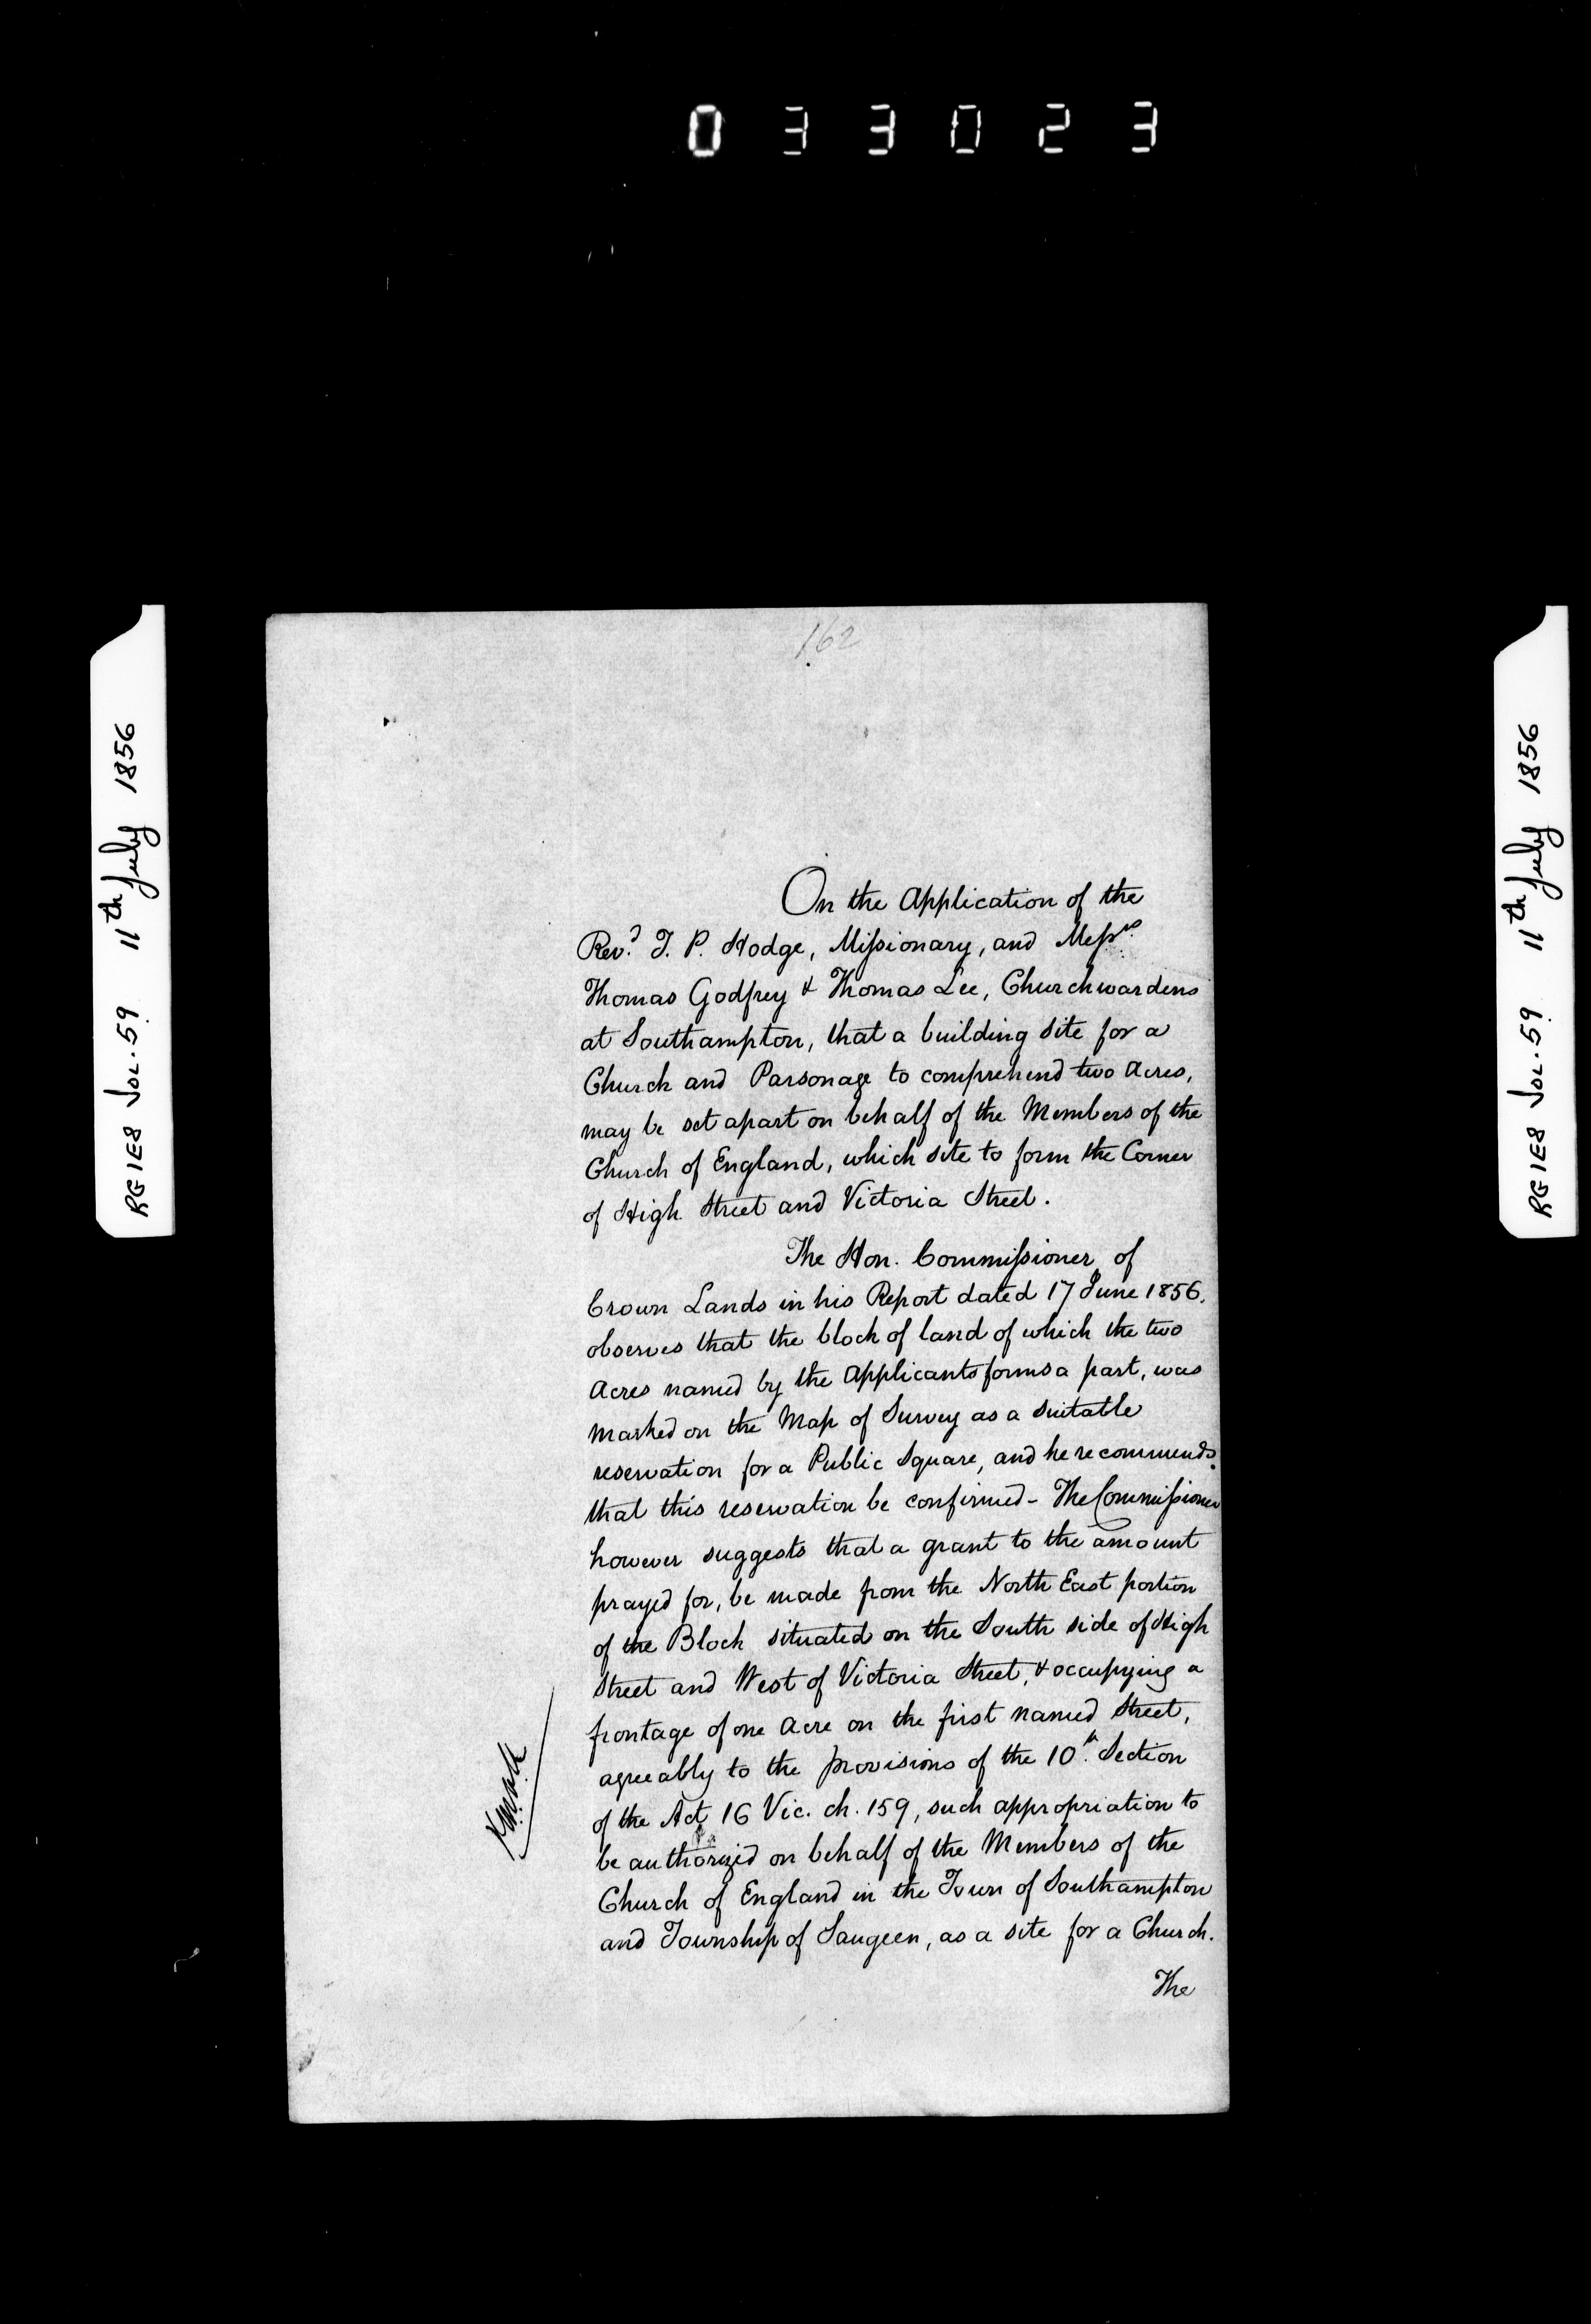 033023
RG1E8 Vol. 59 11th July 1856
162
On the Application of the
Revd. T. P. Hodge, Missionary, and Messrs.
Thomas Godfrey & Thomas Lee, Churchwardens
at Southampton, that a building site for a
Church and Parsonage to comprehend two Acres,
may be set apart on behalf of the Members of the
Church of England, which site to form the Corner
of High Street and Victoria Street.
The Hon. Commissioner of
Crown Lands in his Report dated 17 June 1856.
observes that the block of land of which the two
Acres named by the Applicants forms a part, was
marked on the Map of Survey as a suitable
reservation for a Public Square, and he recommends
that this reservation be confirmed - The Commissioner
however suggests that a grant to the amount
prayed for, be made from the North East portion
of the Block situated on the South side of High
Street and West of Victoria Street, & occupying a
frontage of one Acre on the first named Street,
agreeably to the provisions of the 10th. Section
of the Act 16 Vic. ch. 159, such appropriation to
be authorized on behalf of the Members of the
Church of England in the Town of Southampton
and Township of Saugeen, as a site for a Church.
The
RG1E8 Vol. 59 11th July 1856